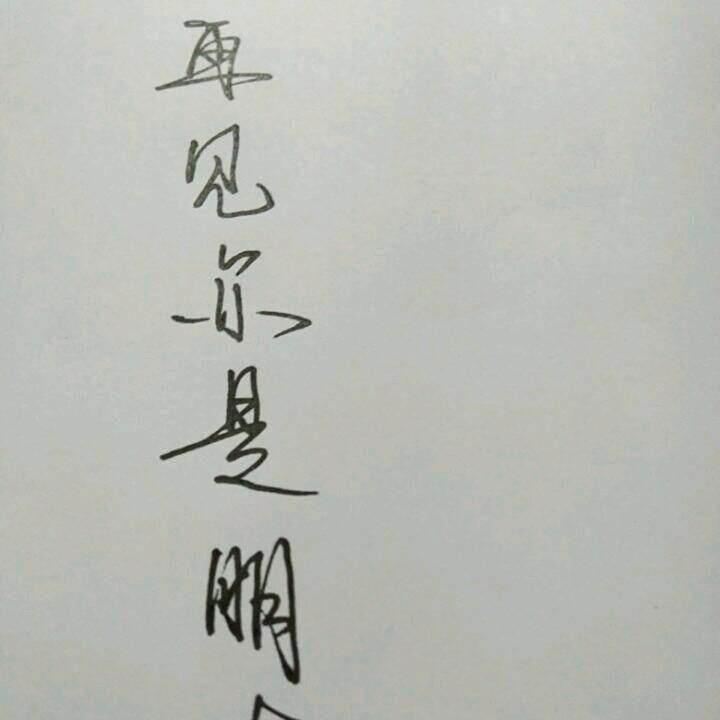 再见亦是朋